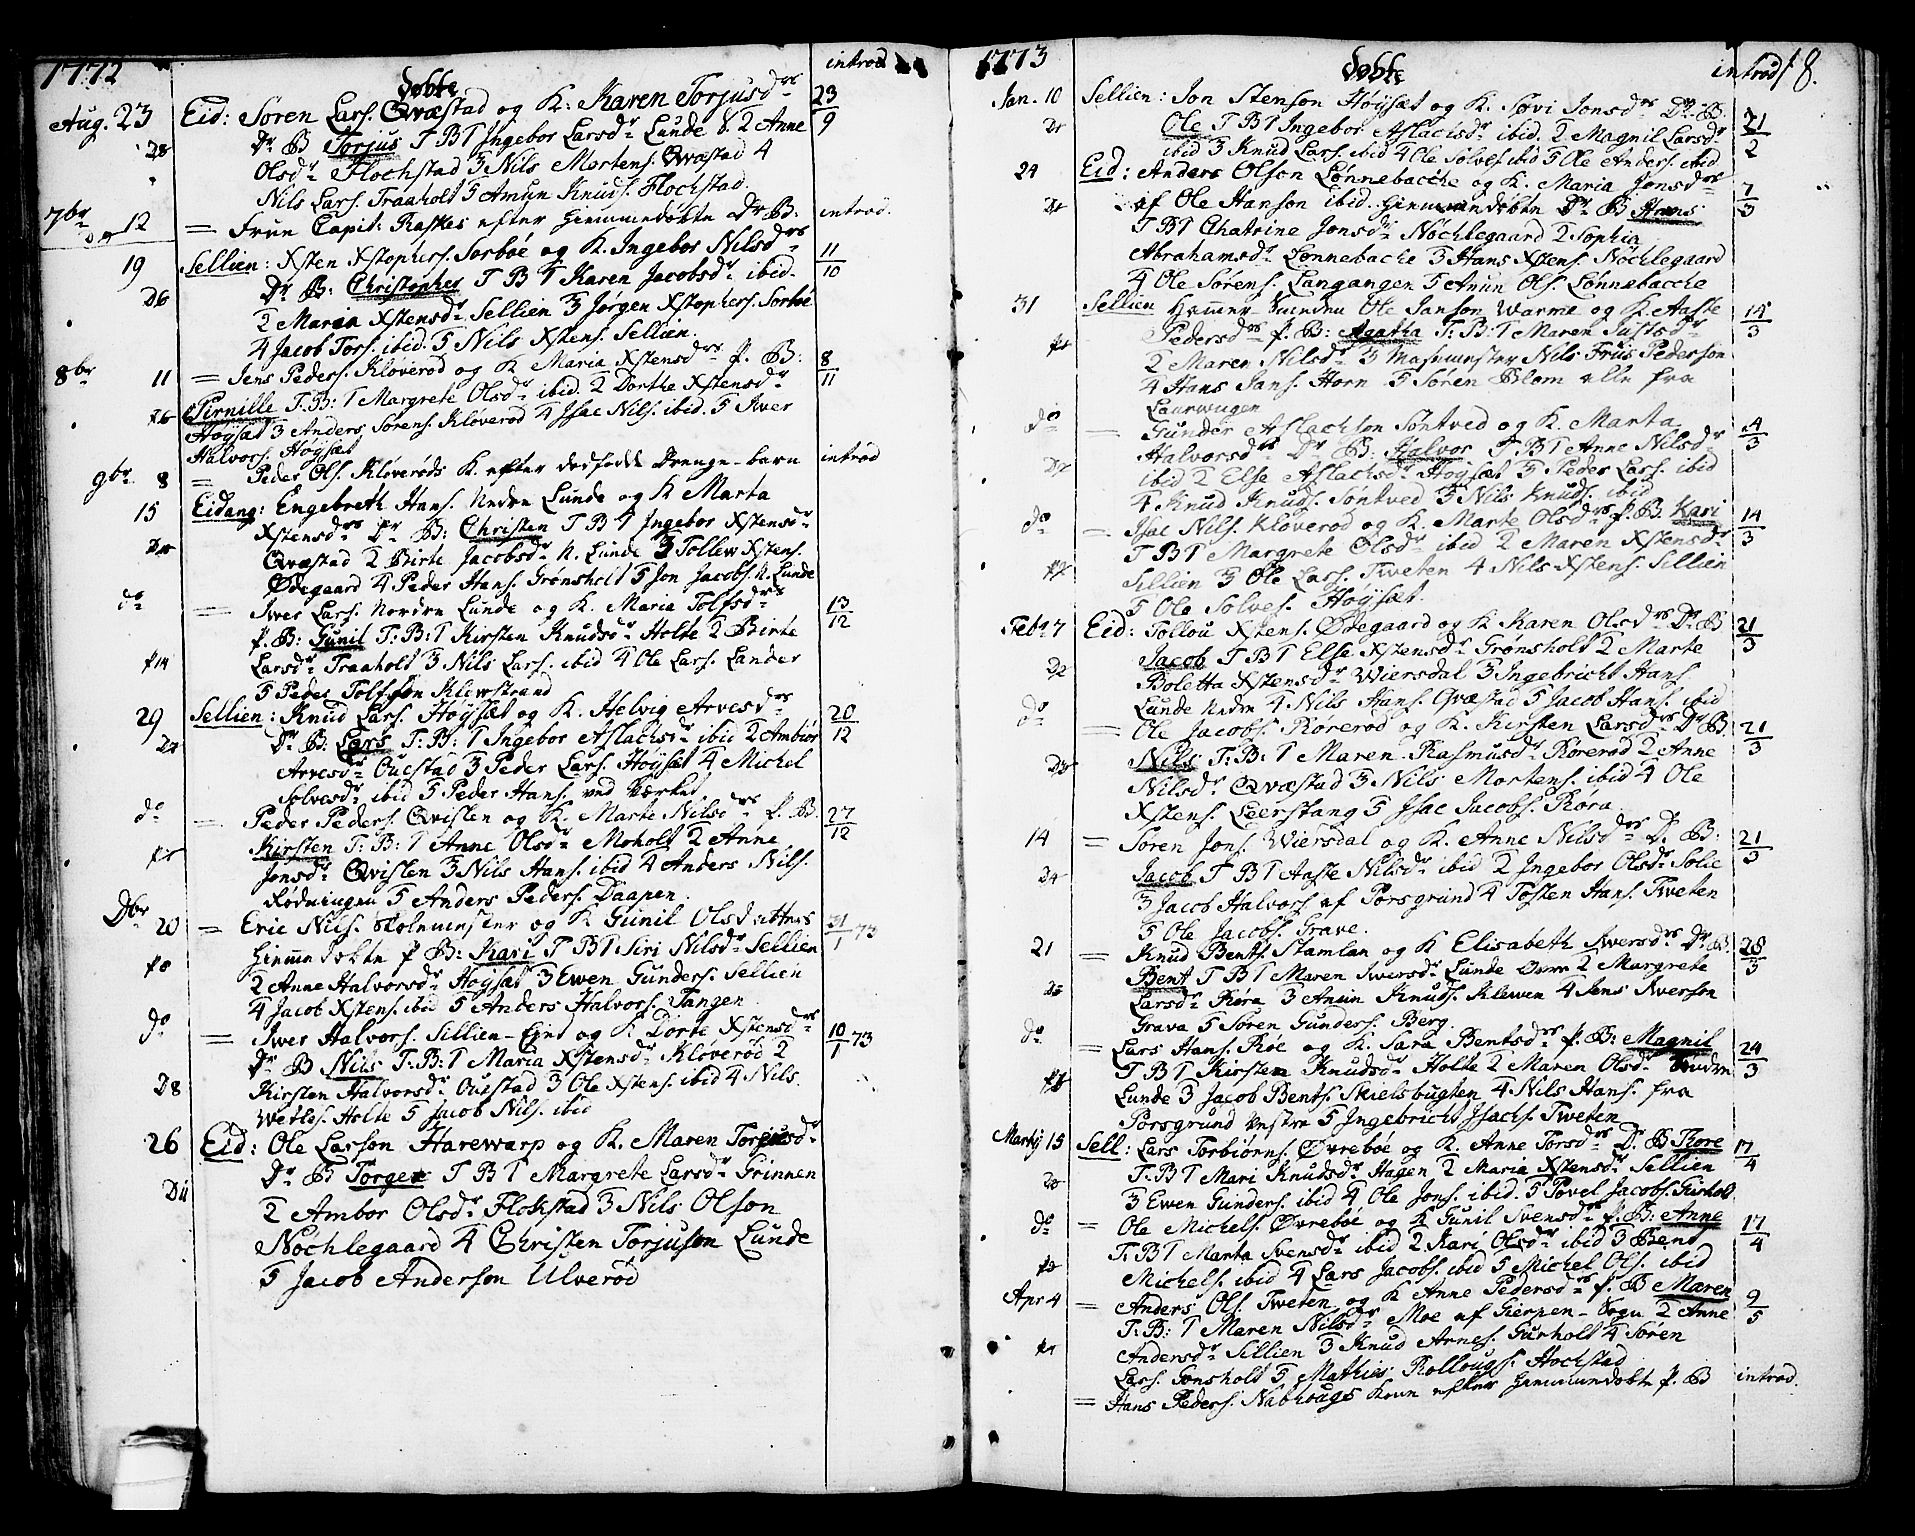 1772
döbte
introd
Aug. 23 Eid: Soren Lars. Qvæstad og K: Karen Torjusdr 23/9
28 Dr B Torjus T B 1 Ingebor Larsdr Lunde 2 Anne
Olsdr Flochstad 3 Nils Mortens. Qvæstad 4
Nils Lars. Traaholt 5 Amun Knuds. Flochstad.
7br 12 = Frun Capit: Raskes efter Giemmedöbte Dr B: introd.
19 Sellien: Xsten Xstophers. Sorbøe og K. Ingebor Nilsdr 11/10
Dr B: Christopher T B 1 Karen Jacobsdr ibid.
D6 2 Maria Xstensdr Sellien 3 Jørgen Xstophers. Sorbøe
4 Jacob Tors. ibid. 5 Nils Xstens. Sellien.
8br 11 = Jens Peders. Kløverød og K Maria Xstensdr P. B: 8/11
Pernille T: B: 1 Margrete Olsdr ibid. 2 Dorthe Xstensdr
Høysæt 3 Anders Sørens. Kløverød 4 Isac Nils. ibid. 5 Iver
Halvors. Høysæt
9br 8 = Peder Ols. Kløverøds K. efter dødfødde Drenge-barn introd
15 Eidang: Engebreth Hans. Nedre Lunde og K Marta
Xstensdr Dr B: Christen T B 1 Ingebor Xstensdr
Qvæstad 2 Birte Jacobsdr N. Lunde 3 Tollew Xstens.
Ødegaard 4 Peder Hans. Grønsholt 5 Jon Jacobs. N. Lunde
do = Iver Lars. Nordre Lunde og K. Maria Tolfsdr 13/12
P. B: Gunil T: B: 1 Kirsten Knudsdr Holte 2 Birte
P14 Larsdr Traaholt 3 Nils Lars. ibid 4 Ole Lars. Lander
5 Peder Tolfson Klewstrand
29 Sellien: Knud Lars. Høysæt og K. Helvig Arvesdr 20/12
Dr B: Lars T: B: 1 Ingebor Aslachsdr ibid 2 Ambiør
Arvesdr Ouestad 3 Peder Lars. Høysæt 4 Michel
Solvesdr ibid 5 Peder Hans. ved Værket.
do = Peder Peders. Qvisten og K. Marte Nilsdr P. B. 27/12
Kirsten T: B: 1 Anne Olsdr Moholt 2 Anne
Jonsdr Qvisten 3 Nils Hans. ibid 4 Anders Nils.
Rødningen 5 Anders Peders. Daapen.
Dbr 20 = Eric Nils. Skolemester og K Gunil Olsdatters 31/1 73
Giemmedobte P B: Kari T B 1 Siri Nilsdr Sellien
2 Anne Halvorsdr Høysæt 3 Ewen Gunders. Sellien
4 Jacob Xstens. ibid 5 Anders Halvors. Tangen
do = Iver Halvors. Sellien-Eied og K. Dorte Xstensdr 10/1 73
Dr B Nils T: B: 1 Maria Xstensdr Kløverød 2
D8 Kirsten Halvorsdr Ouestad 3 Ole Xstens. ibid 4 Nils
Wetles. Holte 5 Jacob Nils. ibid
26 Eid: Ole Larson Harewarp og K. Maren Torjusdr
Dr B Torger T B 1 Margrete Larsdr Grinnen
D11 2 Ambor Olsdr Flokstad 3 Nils Olson
Nochlegaard 4 Christen Torjuson Lunde
5 Jacob Anderson Ulverød
1773
döbte
introd 18.
Jan. 10 Sellien: Jon Stenson Høysæt og K. Søvi Jonsdr Dr B. 21/2
Ole T B 1 Ingebor Aslachsdr ibid. 2 Magnil Larsdr
ibid 3 Knud Lars. ibid 4 Ole Solves. ibid 5 Ole Anders. ibid
24 Eid: Anders Olson Lønnebacche og K. Maria Jonsdr 7/3
af Ole Hanson ibid. Giemmedobte Dr B Hans
T B 1 Chatrine Jonsdr Nochlegaard 2 Sophia
Abrahamsdr Lønnebache 3 Hans Xstens. Nochlegaard
4 Ole Sørens. Langangen 5 Amun Ols. Lønnebacche
31 Sellien Hammer-Smeden Ole Janson Warme og K. Aaste 14/3
Pedersdr P. B: Agatha T: B: 1 Maren Justsdr
2 Maren Nilsdr 3 Masmester Nils Friis Pederson
4 Hans Jans. Horn 5 Søren Blom alle fra
Laurwigen
do = Gunder Aslachson Sontved og K. Marta 14/3
Halvorsdr Dr B: Halvor T B 1 Anne Nilsdr
ibid 2 Else Aslachsdr Høysæt 3 Peder Lars. ibid
4 Knud Knuds. Sontved 5 Nils Knuds. ibid
do = Isac Nils. Kloverød og K. Marte Olsdr P. B. Kari 14/3
T B 1 Margrete Olsdr ibid 2 Maren Xstensdr
Sellien 3 Ole Lars. Tweten 4 Nils Xstens. Sellien
5 Ole Solves. Høysæt.
Febr 7 Eid: Tollou Xstens. Ødegaard og K Karen Olsdr Dr B 21/3
Jacob T B 1 Else Xstensdr Grønsholt 2 Marte
D2 Boletta Xstensdr Wiersdal 3 Ingebricht Hans.
Lunde Nedre 4 Nils Hans. Qvæstad 5 Jacob Hans. ibid
do = Ole Jacobs. Rørerød og K. Kirsten Larsdr Dr B 21/3
Nils T: B: 1 Maren Rasmusdr Rørerød 2 Anne
D3 Nilsdr Qvæstad 3 Nils Mortens. ibid 4 Ole
Xstens. Leerstang 5 Isac Jacobs. Røra
14 = Søren Jons. Wiersdal og K. Anne Nilsdr D. B: 21/3
D4 Jacob T B 1 Aaste Nilsdr ibid 2 Ingebor Olsdr Solie
3 Jacob Halvors af Porsgrund 4 Tosten Hans. Tweten
5 Ole Jacobs. Grave.
21 = Knud Bents. Stamlan og K Elisabeth Iversdr Dr B: 28/3
Bent T B 1 Maren Iversdr Lunde Ovre 2 Margrete
D5 Larsdr Røra 3 Amun Knuds. Klewen 4 Jens Iverson
Grava 5 Søren Gunders. Berg.
do = Lars Hans. Røe og K. Sara Bentsdr P. B: Magnil 24/3
T B 1 Kirsten Knudsdr Holte 2 Maren Olsdr Nordre
Lunde 3 Jacob Bents. Skielsbugten 4 Nils Hans. fra
Porsgrund Vestre 5 Ingebricht Isachs. Tweten
Martij 15 Sell: Lars Torbiørns. Øvrebøe og K. Anne Torsdr Dr B Tore 17/4
T: B 1 Mari Knudsdr Hagen 2 Maria Xstensdr Sellien
3 Ewen Gunders. ibid 4 Ole Jons. ibid. 5 Povel Jacobs. Gurholt
do = Ole Michels. Øvrebøe og K Gunil Svensdr P. B: Anne 17/4
T: B 1 Marta Svensdr ibid 2 Kari Olsdr ibid 3 Bent
Michels. ibid 4 Lars Jacobs. ibid 5 Michel Ols. ibid
Apr 4 = Anders Ols. Tweten og K Anne Pedersdr P. B Maren 9/5
T: B: 1 Maren Nilsdr Moe af Gierpen-Sogn 2 Anne
Andersdr Sellien 3 Knud Arnes. Gurholt 4 Søren
Lars. Gonsholt 5 Mathies Rollougs. Hochstad
= Hans Peders. Nabrougs Kone efter Giemmedobte P. B introd.